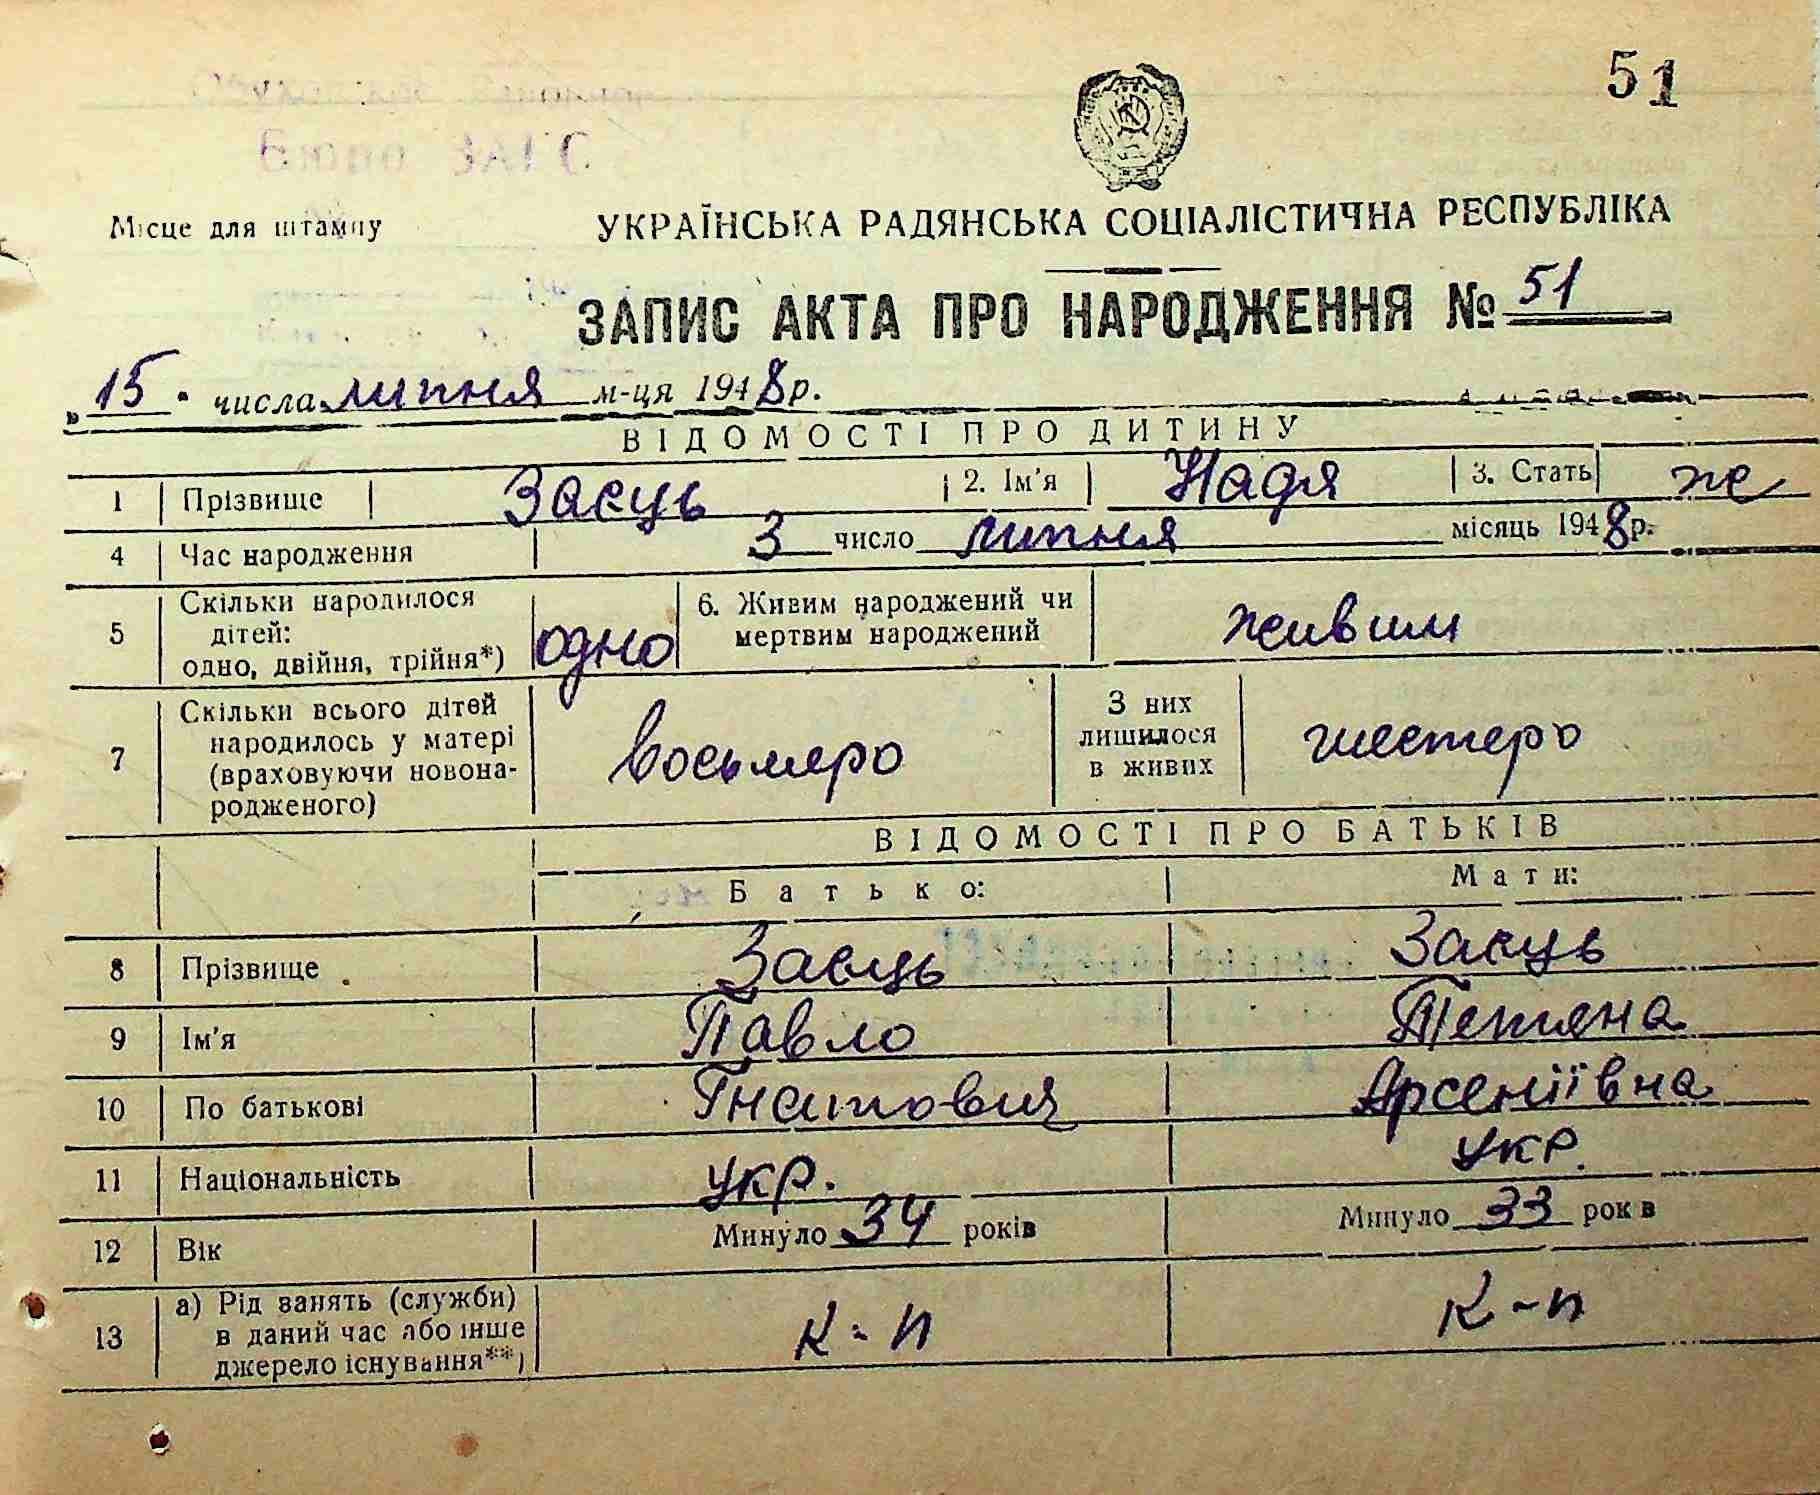 51
Місце для штампу
УКРАЇНСЬКА РАДЯНСЬКА СОЦІАЛІСТИЧНА РЕСПУБЛІКА
ЗАПИС АКТА ПРО НАРОДЖЕННЯ № 51
„15" числа липня м-ця 1948 р.
ВІДОМОСТІ ПРО ДИТИНУ
1 Прізвище Заєць 2. Ім'я Надя 3. Стать же
4 Час народження 3 число липня місяць 1948 р.
5 Скільки народилося дітей: одно, двійня, трійня*) одно 6. Живим народжений чи мертвим народжений живим
7 Скільки всього дітей народилось у матері (враховуючи новонародженого) восьмеро З них лишилося в живих шестеро
ВІДОМОСТІ ПРО БАТЬКІВ
Батько: Мати:
8 Прізвище Заєць Заєць
9 Ім'я Павло Тетяна
10 По батькові Гнатович Арсеніївна
11 Національність укр. укр.
12 Вік Минуло 34 років Минуло 33 років
13 а) Рід занять (служби) в даний час або інше джерело існування**) к-п к-п